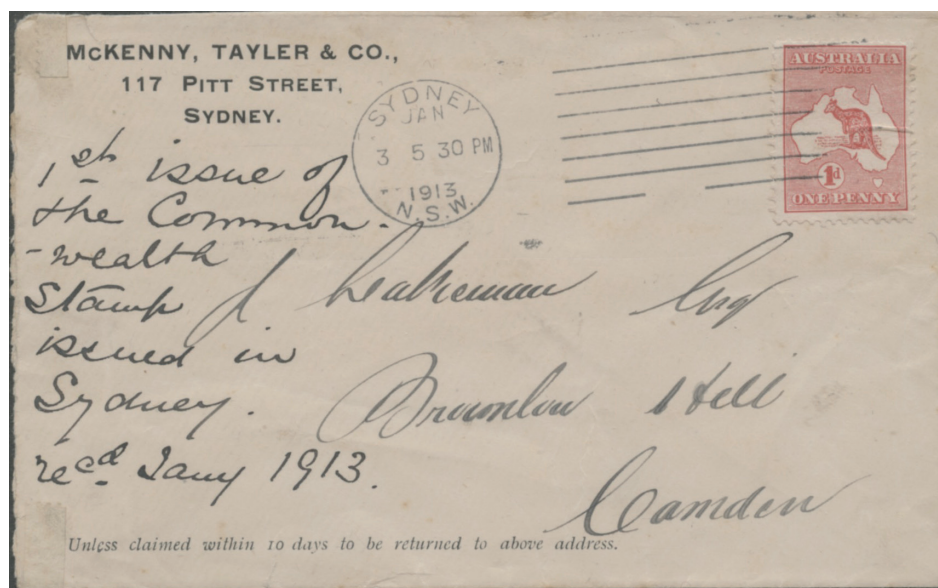 McKENNY, TAYLER & CO.,
117 PITT STREET,
SYDNEY.
SYDNEY
JAN
3 5 30 PM
1913
N.S.W.
AUSTRALIA
POSTAGE
1d
ONE PENNY
1st issue of
the Common-
-wealth
Stamp
issued in
Sydney.
recd Jany 1913.
J Esqr
Brownlow Hill
Camden
Unless claimed within 10 days to be returned to above address.